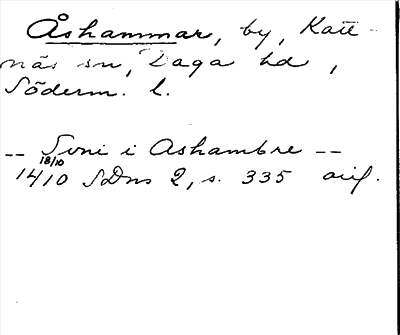 Åshammar, by, Katt-
näs sn, Daga hd,
Söderm. l.
-- Suni i Ashambre --
18/10
1410 SDns 2, s. 335 avs.